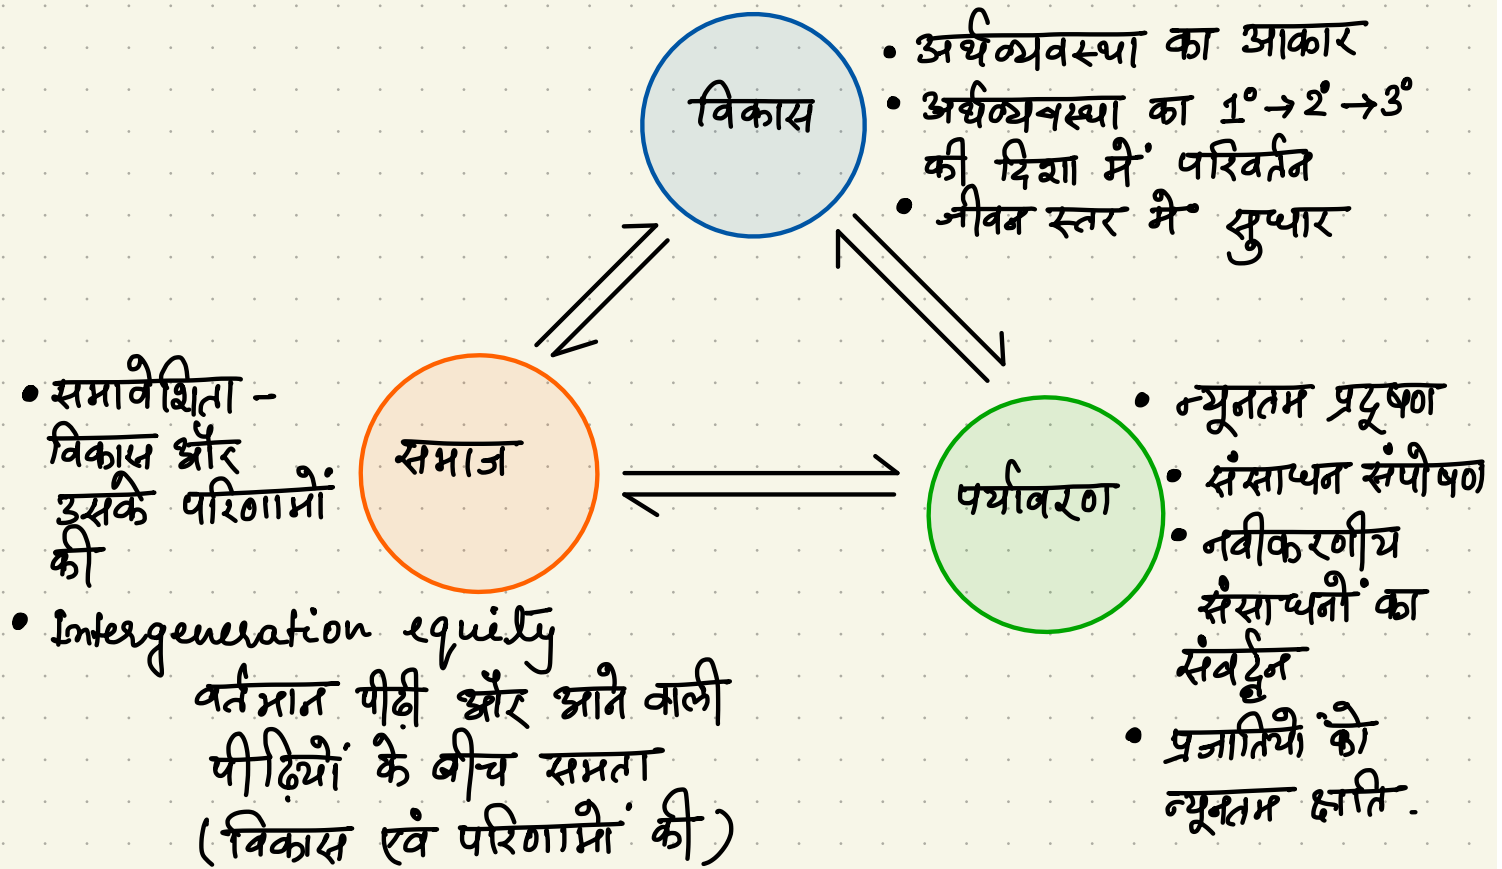 विकास
• अर्थव्यवस्था का आकार
• अर्थव्यवस्था का 1° → 2° → 3°
की दिशा में परिवर्तन
• जीवन स्तर में सुधार
• समावेशिता -
विकास और
उसके परिणामों
की
• Intergeneration equity
वर्तमान पीढ़ी और आने वाली
पीढ़ियों के बीच समता
(विकास एवं परिणामों की)
समाज
पर्यावरण
• न्यूनतम प्रदूषण
• संसाधन संपोषण
• नवीकरणीय
संसाधनों का
संवर्द्धन
• प्रजातियों को
न्यूनतम क्षति.